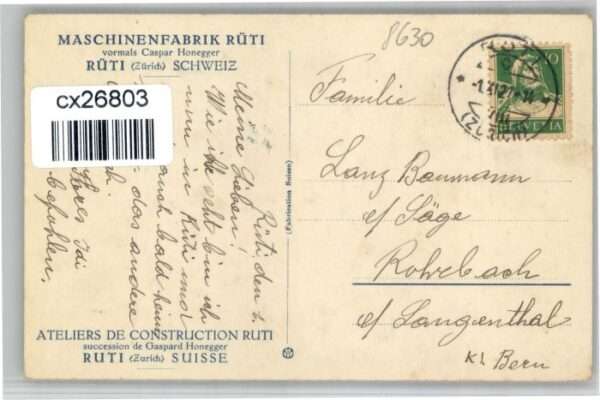 MASCHINENFABRIK RÜTI
vormals Caspar Honegger
RÜTI (Zürich) SCHWEIZ
8630
cx26803
HELVETIA
(ZÜRICH)
Familie
Lanz Baumann
c/o Säge
Rohrbach
c/o Langenthal
Kt. Bern
(Fabrication Suisse)
Rüti, den
Meine Lieben!
Wie Ihr seht bin ich
nun in Rüti
auch bald heim
das andere
befohlen.
ATELIERS DE CONSTRUCTION RUTI
succession de Gaspard Honegger
RUTI (Zurich) SUISSE